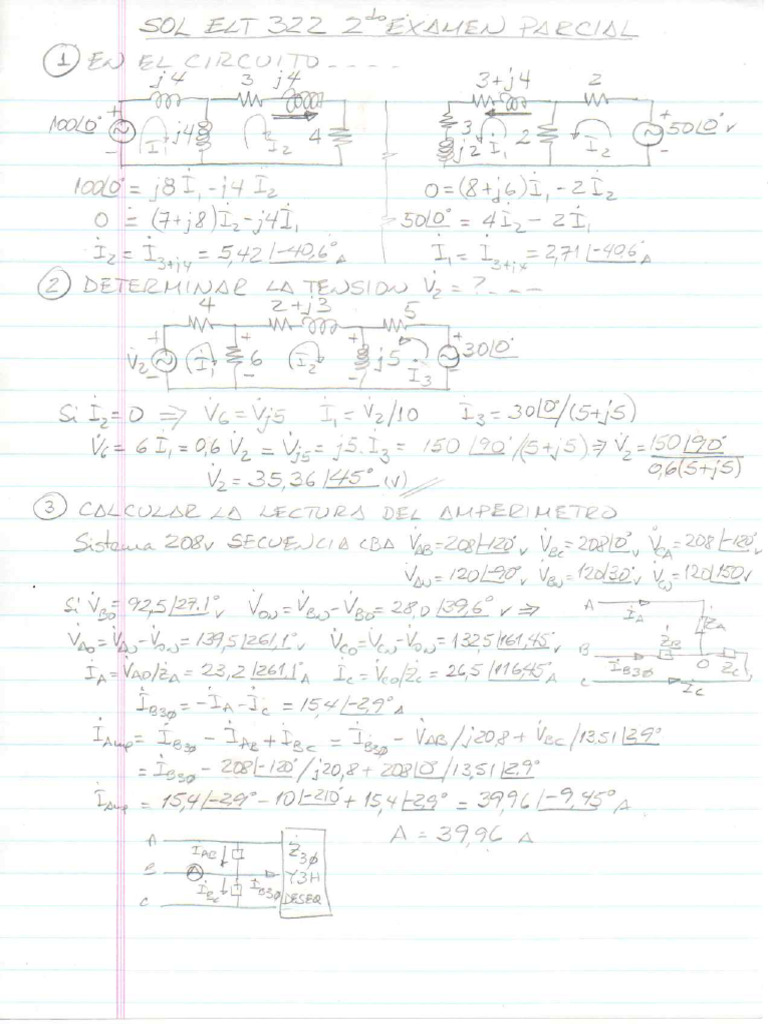 SOL ELT 322 2do EXAMEN PARCIAL
① EN EL CIRCUITO - - - - -
j4 3 j4
100∠0° + - j4 İ1 İ2 4
3+j4 2
3 j2 İ1 2 İ2 + - 50∠0° v
100∠0° = j8 İ1 - j4 İ2
0 = (8+j6) İ1 - 2 İ2
0 = (7+j8) İ2 - j4 İ1
50∠0° = 4 İ2 - 2 İ1
İ2 = İ3+j4 = 5,42 ∠-40,6° A
İ1 = İ3+jx = 2,71 ∠-40,6 A
② DETERMINAR LA TENSION V̇2 = ? - - - -
4 2+j3 5
V̇2 + - İ1 + 6 - İ2 + j5 - İ3 + - 30∠0°
Si İ2=0 ⇒ V̇6 = V̇j5 İ1 = V̇2/10 İ3 = 30∠0°/(5+j5)
V̇6 = 6 İ1 = 0,6 V̇2 = V̇j5 = j5. İ3 = 150 ∠90°/(5+j5) ⇒ V̇2 = 150 ∠90° / 0,6(5+j5)
V̇2 = 35,36 ∠45° (V)
③ CALCULAR LA LECTURA DEL AMPERIMETRO
Sistema 208v SECUENCIA CBA V̇AB=208∠-120° v V̇BC=208∠0° v V̇CA=208∠-120° v
V̇AN=120∠-90° v V̇BN=120∠30° v V̇CN=120∠150 v
Si V̇BO= 92,5 ∠27.1° v V̇ON= V̇BN - V̇BO = 28,0 ∠39,6° v ⇒
V̇AO= V̇AN - V̇ON = 139,5 ∠261,1° v V̇CO= V̇CN - V̇ON = 132,5 ∠161,45° v
İA = V̇AO/ŻA = 23,2 ∠261,1 A İC = V̇CO/ŻC = 26,5 ∠116,45° A
A İA ŻA
B İB3Ø ŻB O ŻC
C İC
İB3Ø = -İA - İC = 15,4 ∠-2,9° A
İAmp = İB3Ø - İAB + İBC = İB3Ø - V̇AB/j20,8 + V̇BC/13,51 ∠2,9°
= İB3Ø - 208∠-120°/j20,8 + 208∠0°/13,51 ∠2,9°
İAmp = 15,4 ∠-2,9° - 10 ∠-210° + 15,4 ∠-2,9° = 39,96 ∠-9,45° A
A = 39,96 A
A İAB Ż3Ø
B A İB3Ø Y3H
C İBC DESEQ